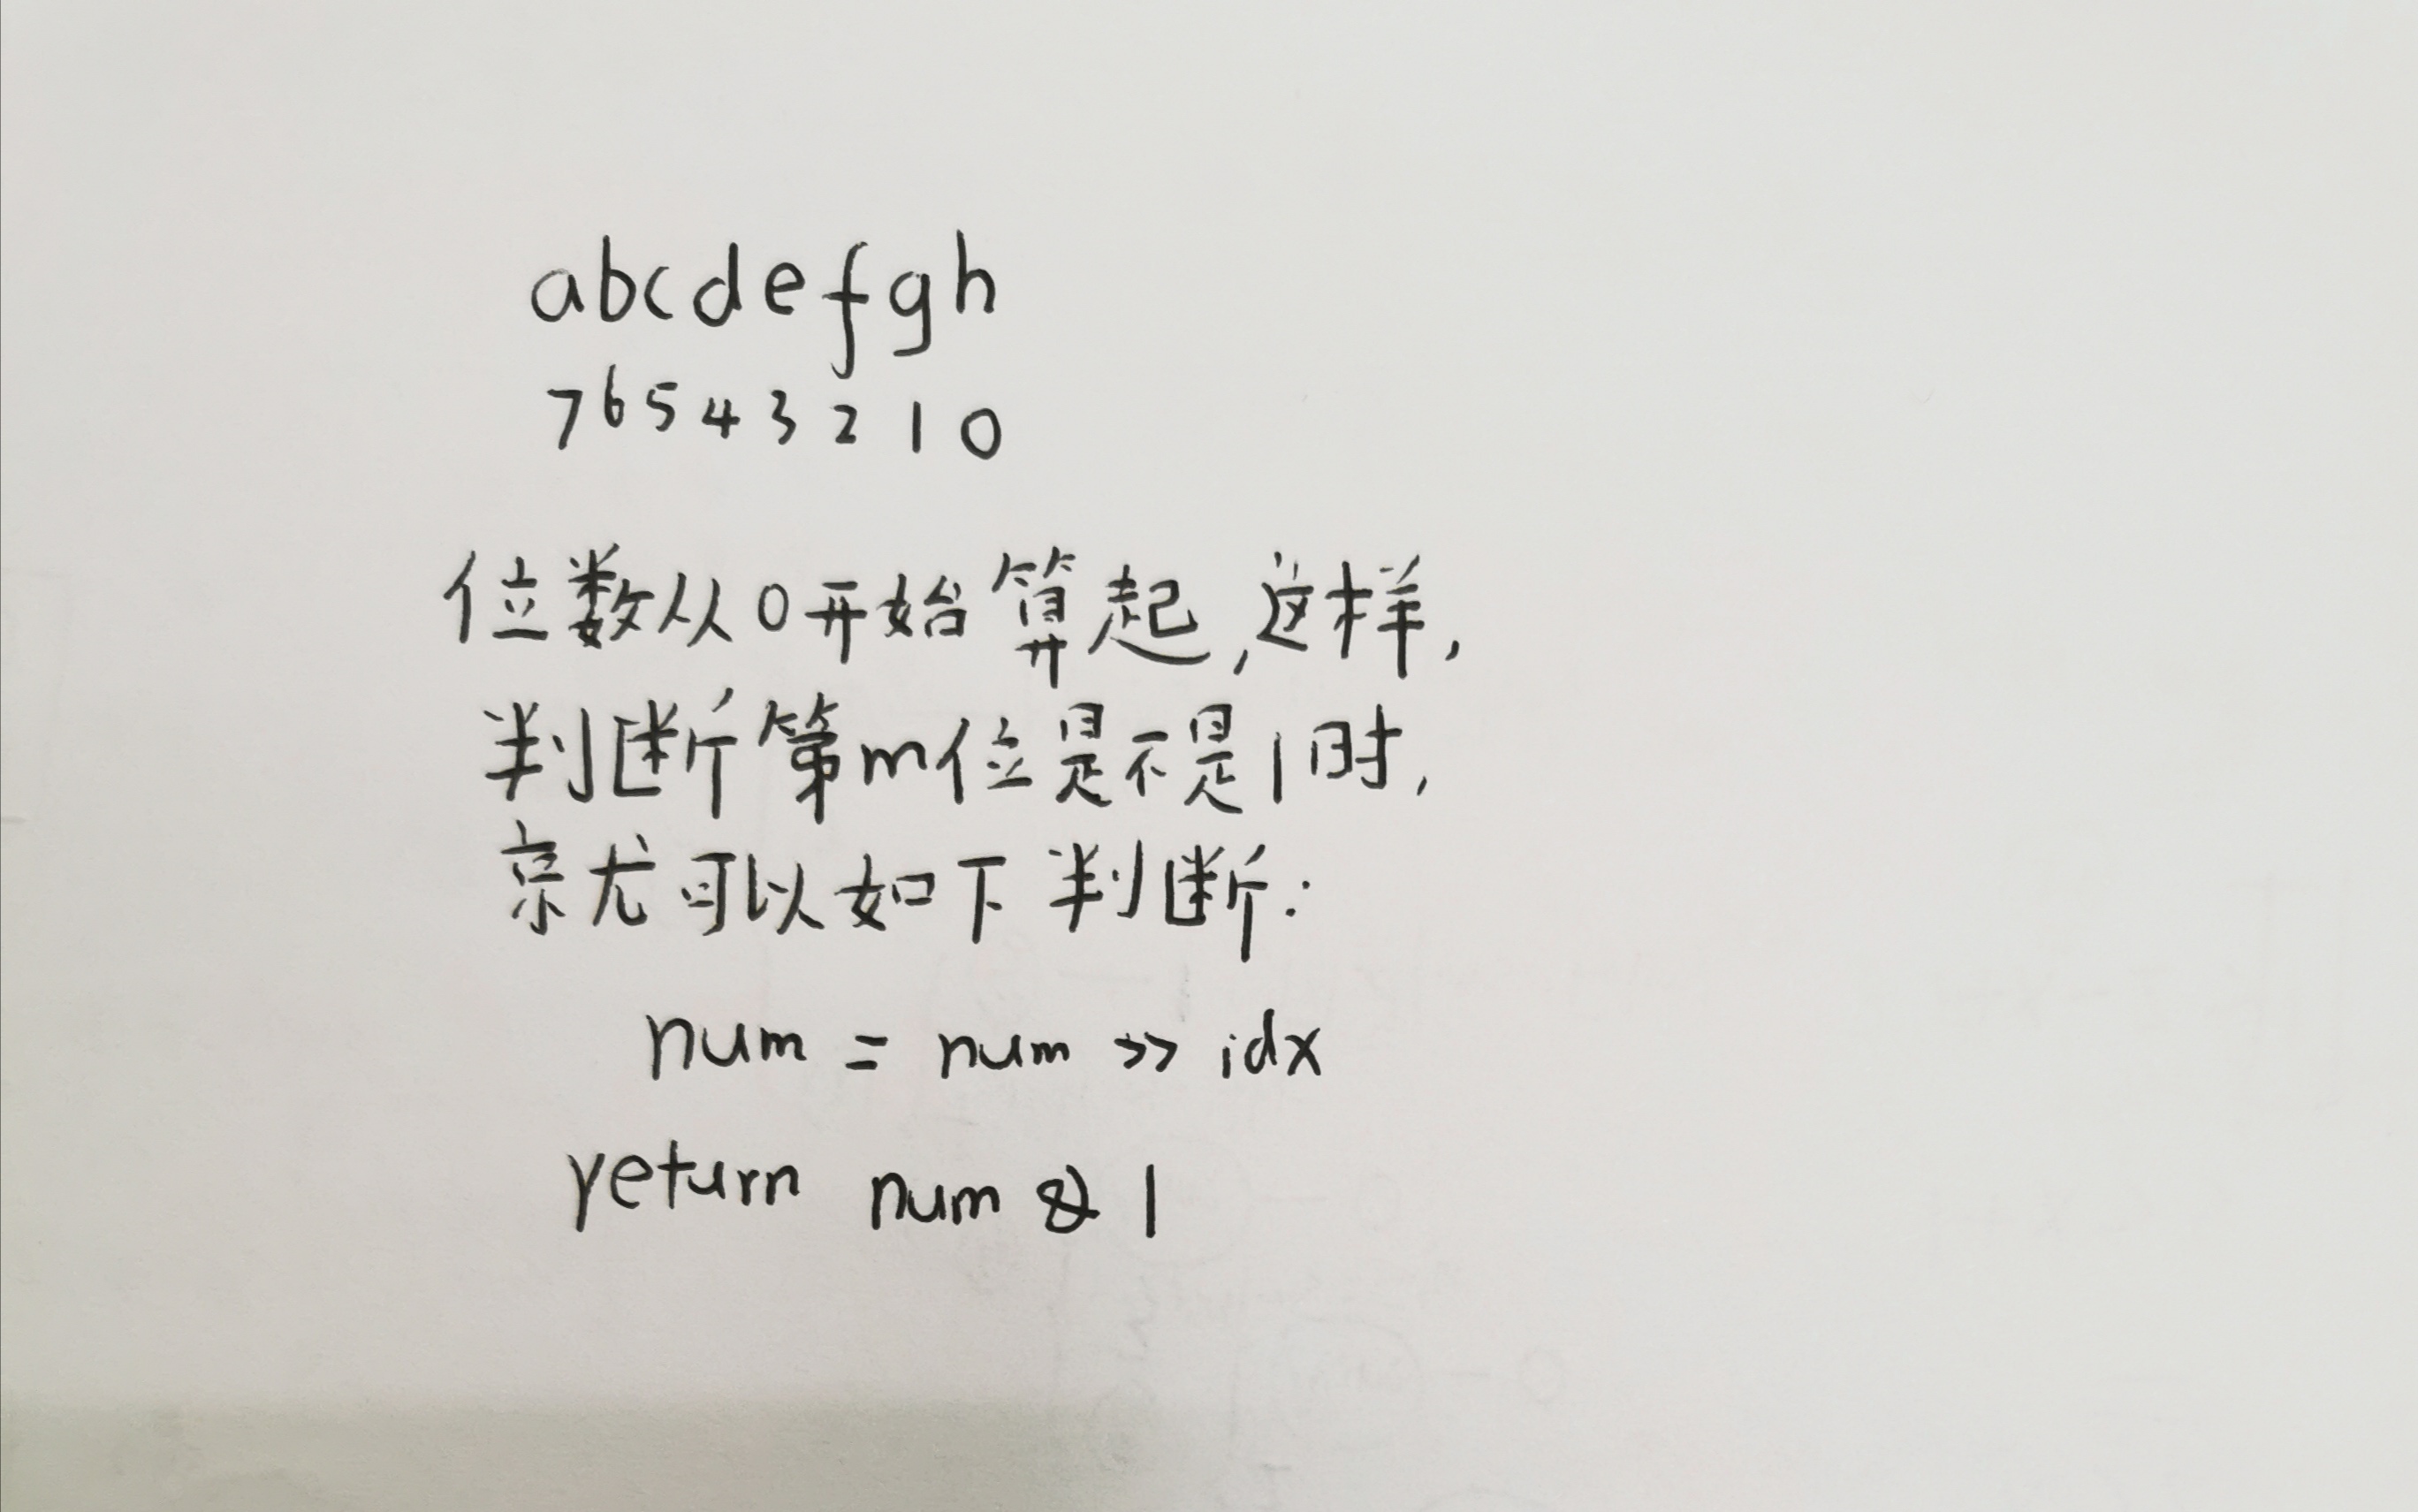 abcdefgh
76543210
位数从0开始算起,这样,
判断第m位是不是1时,
就可以如下判断:
num = num >> idx
return num & 1